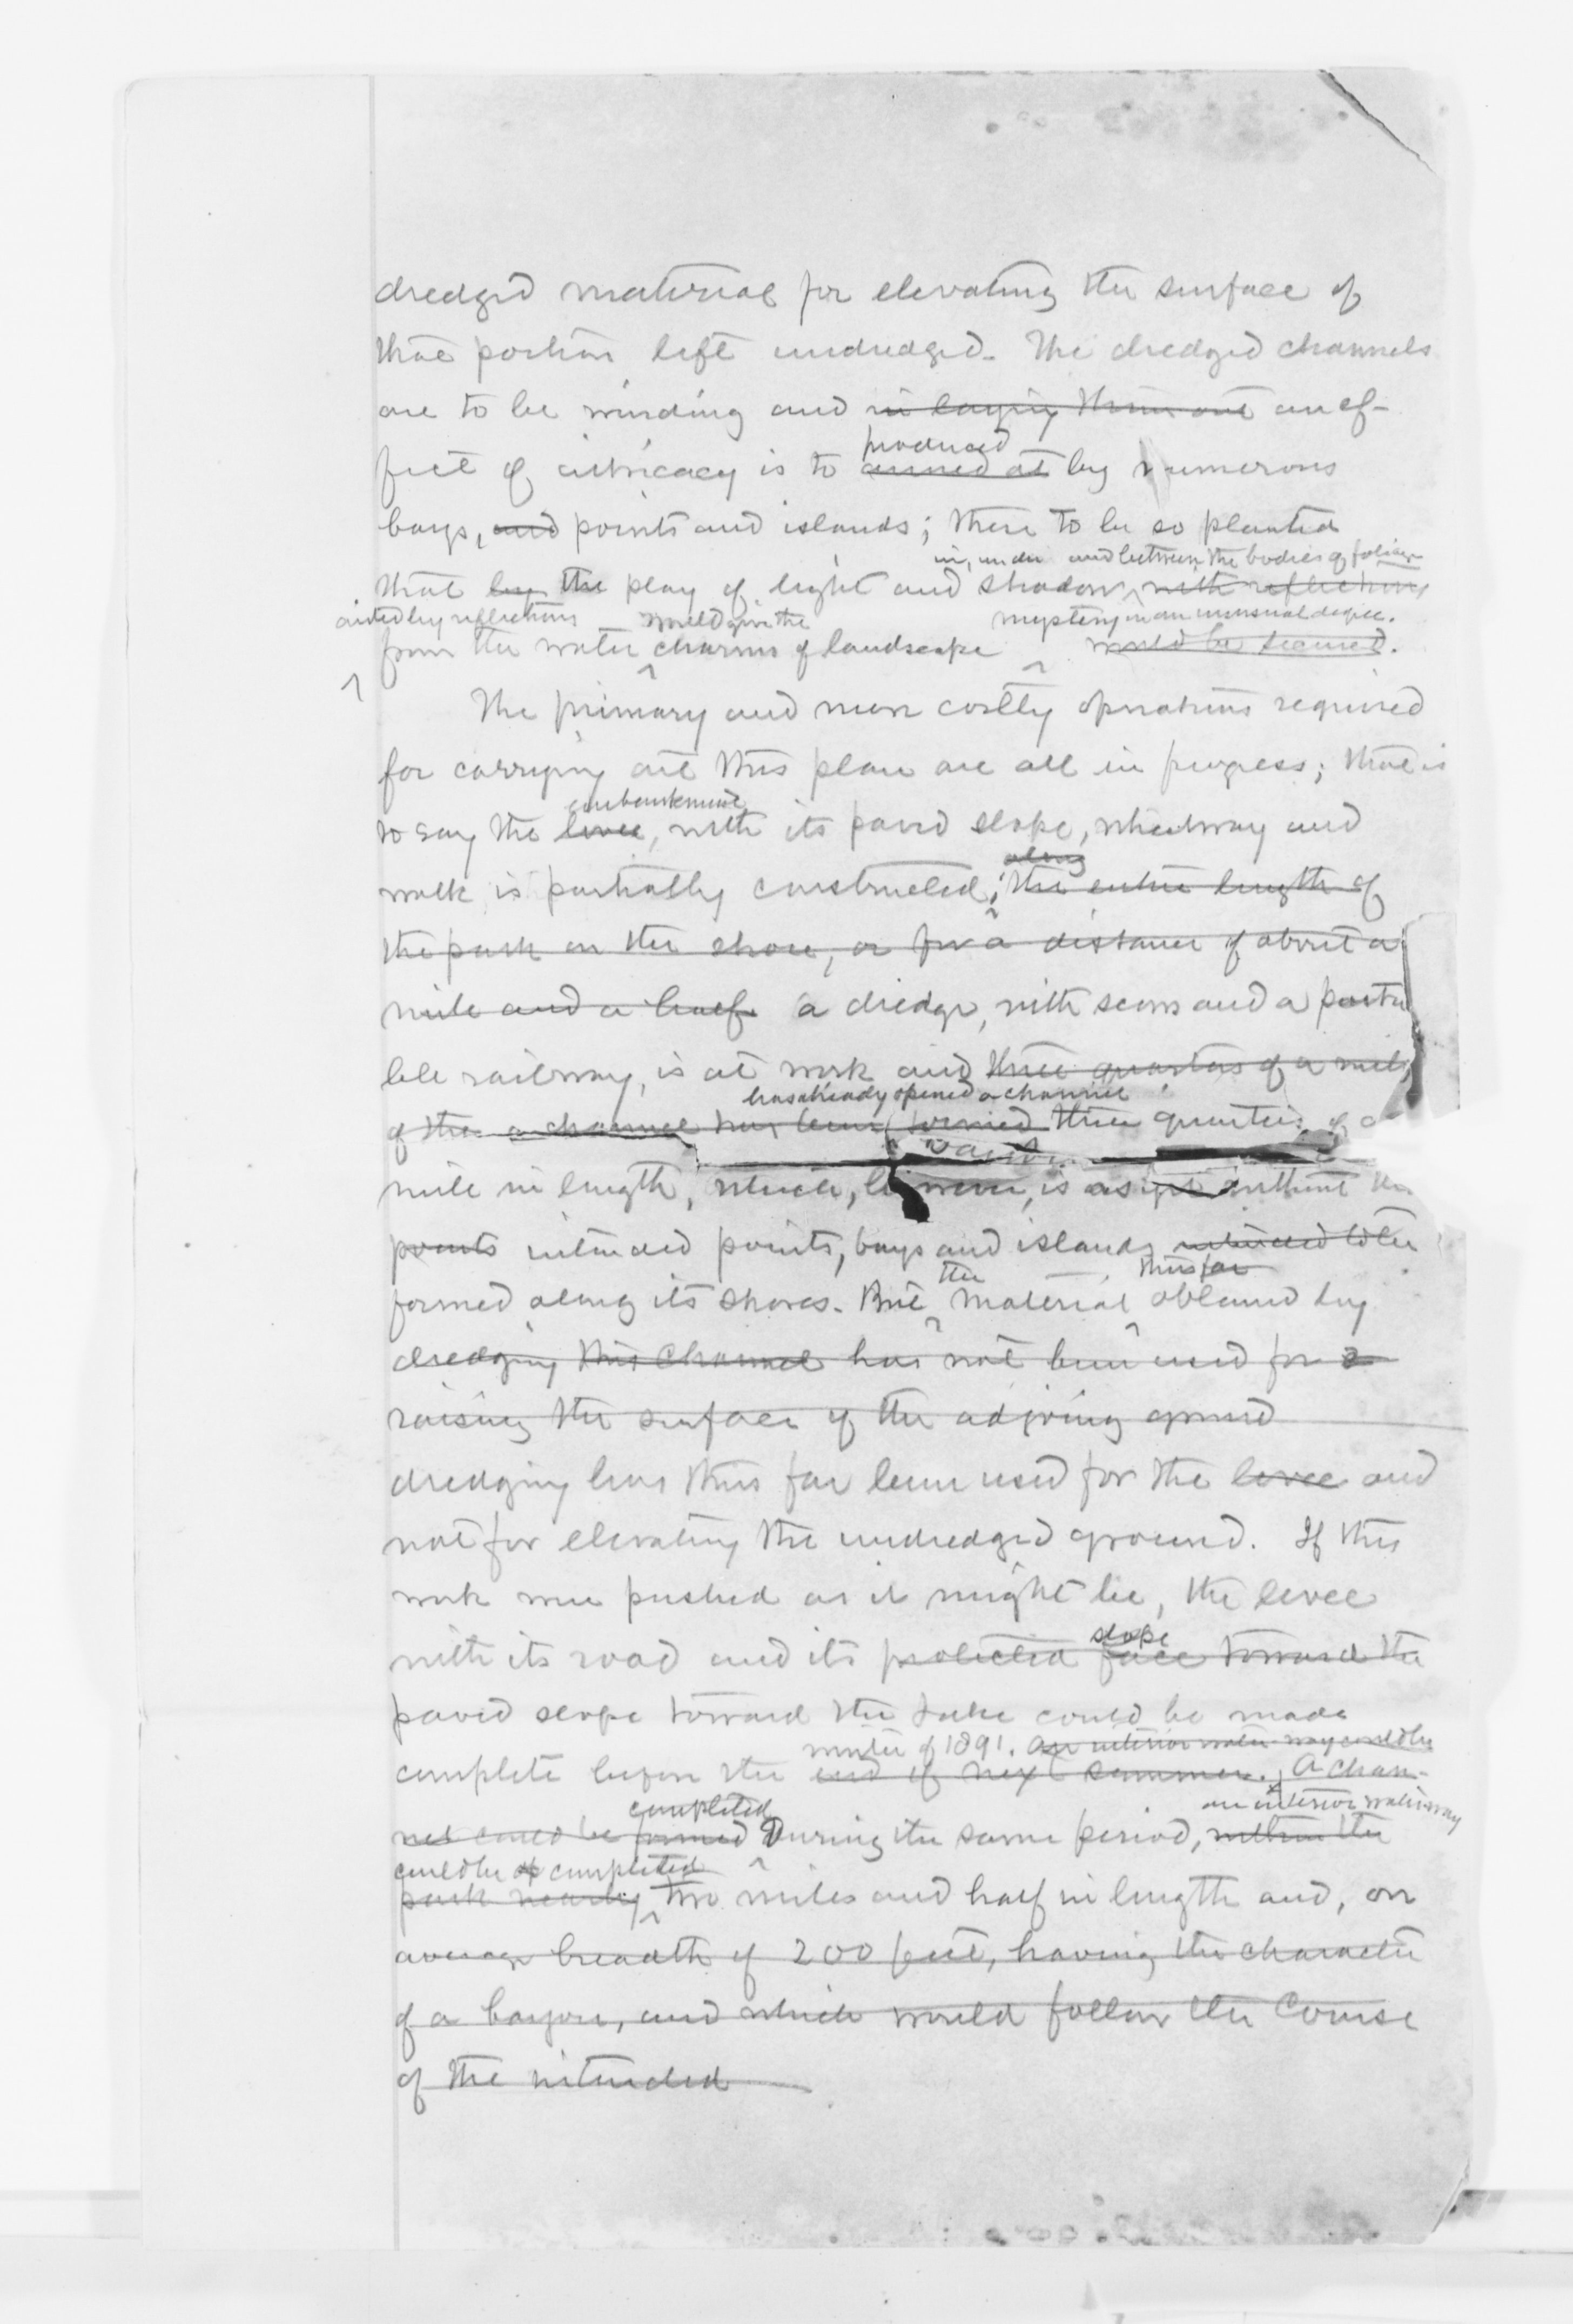 dredged material for elevating the surface of
that portion left undredged. The dredged channels
are to be winding and in laying them out an ef-
produced
fect of intricacy is to aimed at by numerous
bays, and points and islands; these to be so planted
in, under and between the bodies of foliage
that by the play of light and shadow, with reflections
aided by reflections would give the mystery in an unusual degree.
from the water charms of landscape would be secured.
The primary and more costly operations required
for carrying out this plan are all in progress; that is
embankment
to say the levee, with its paved slope, wheelway and
along
walk is partially constructed; the entire length of
the park on the shore, or for a distance of about a
mile and a half. a dredge, with scows and a porta
ble railway, is at work and three quarters of a mile
has already opened a channel
of the a channel has been formed three quarters of a
mile in length, which, however, is as yet without the
points intended points, bays and islands intended to be
the thus far
formed along its shores. But material obtained by
dredging this channel has not been used for
raising the surface of the adjoining ground
dredging has thus far been used for the levee and
not for elevating the undredged ground. If this
work were pushed as it might be, the levee
slope
with its road and its protected face toward the
paved slope toward the Lake could be made
winter of 1891. an interior water way could be
complete before the end of next summer. A chan-
completed an interior waterway
nel could be formed During the same period, within the
could be completed
park nearly two miles and half in length and, on
average breadth of 200 feet, having the character
of a bayou, and which would follow the course
of the intended